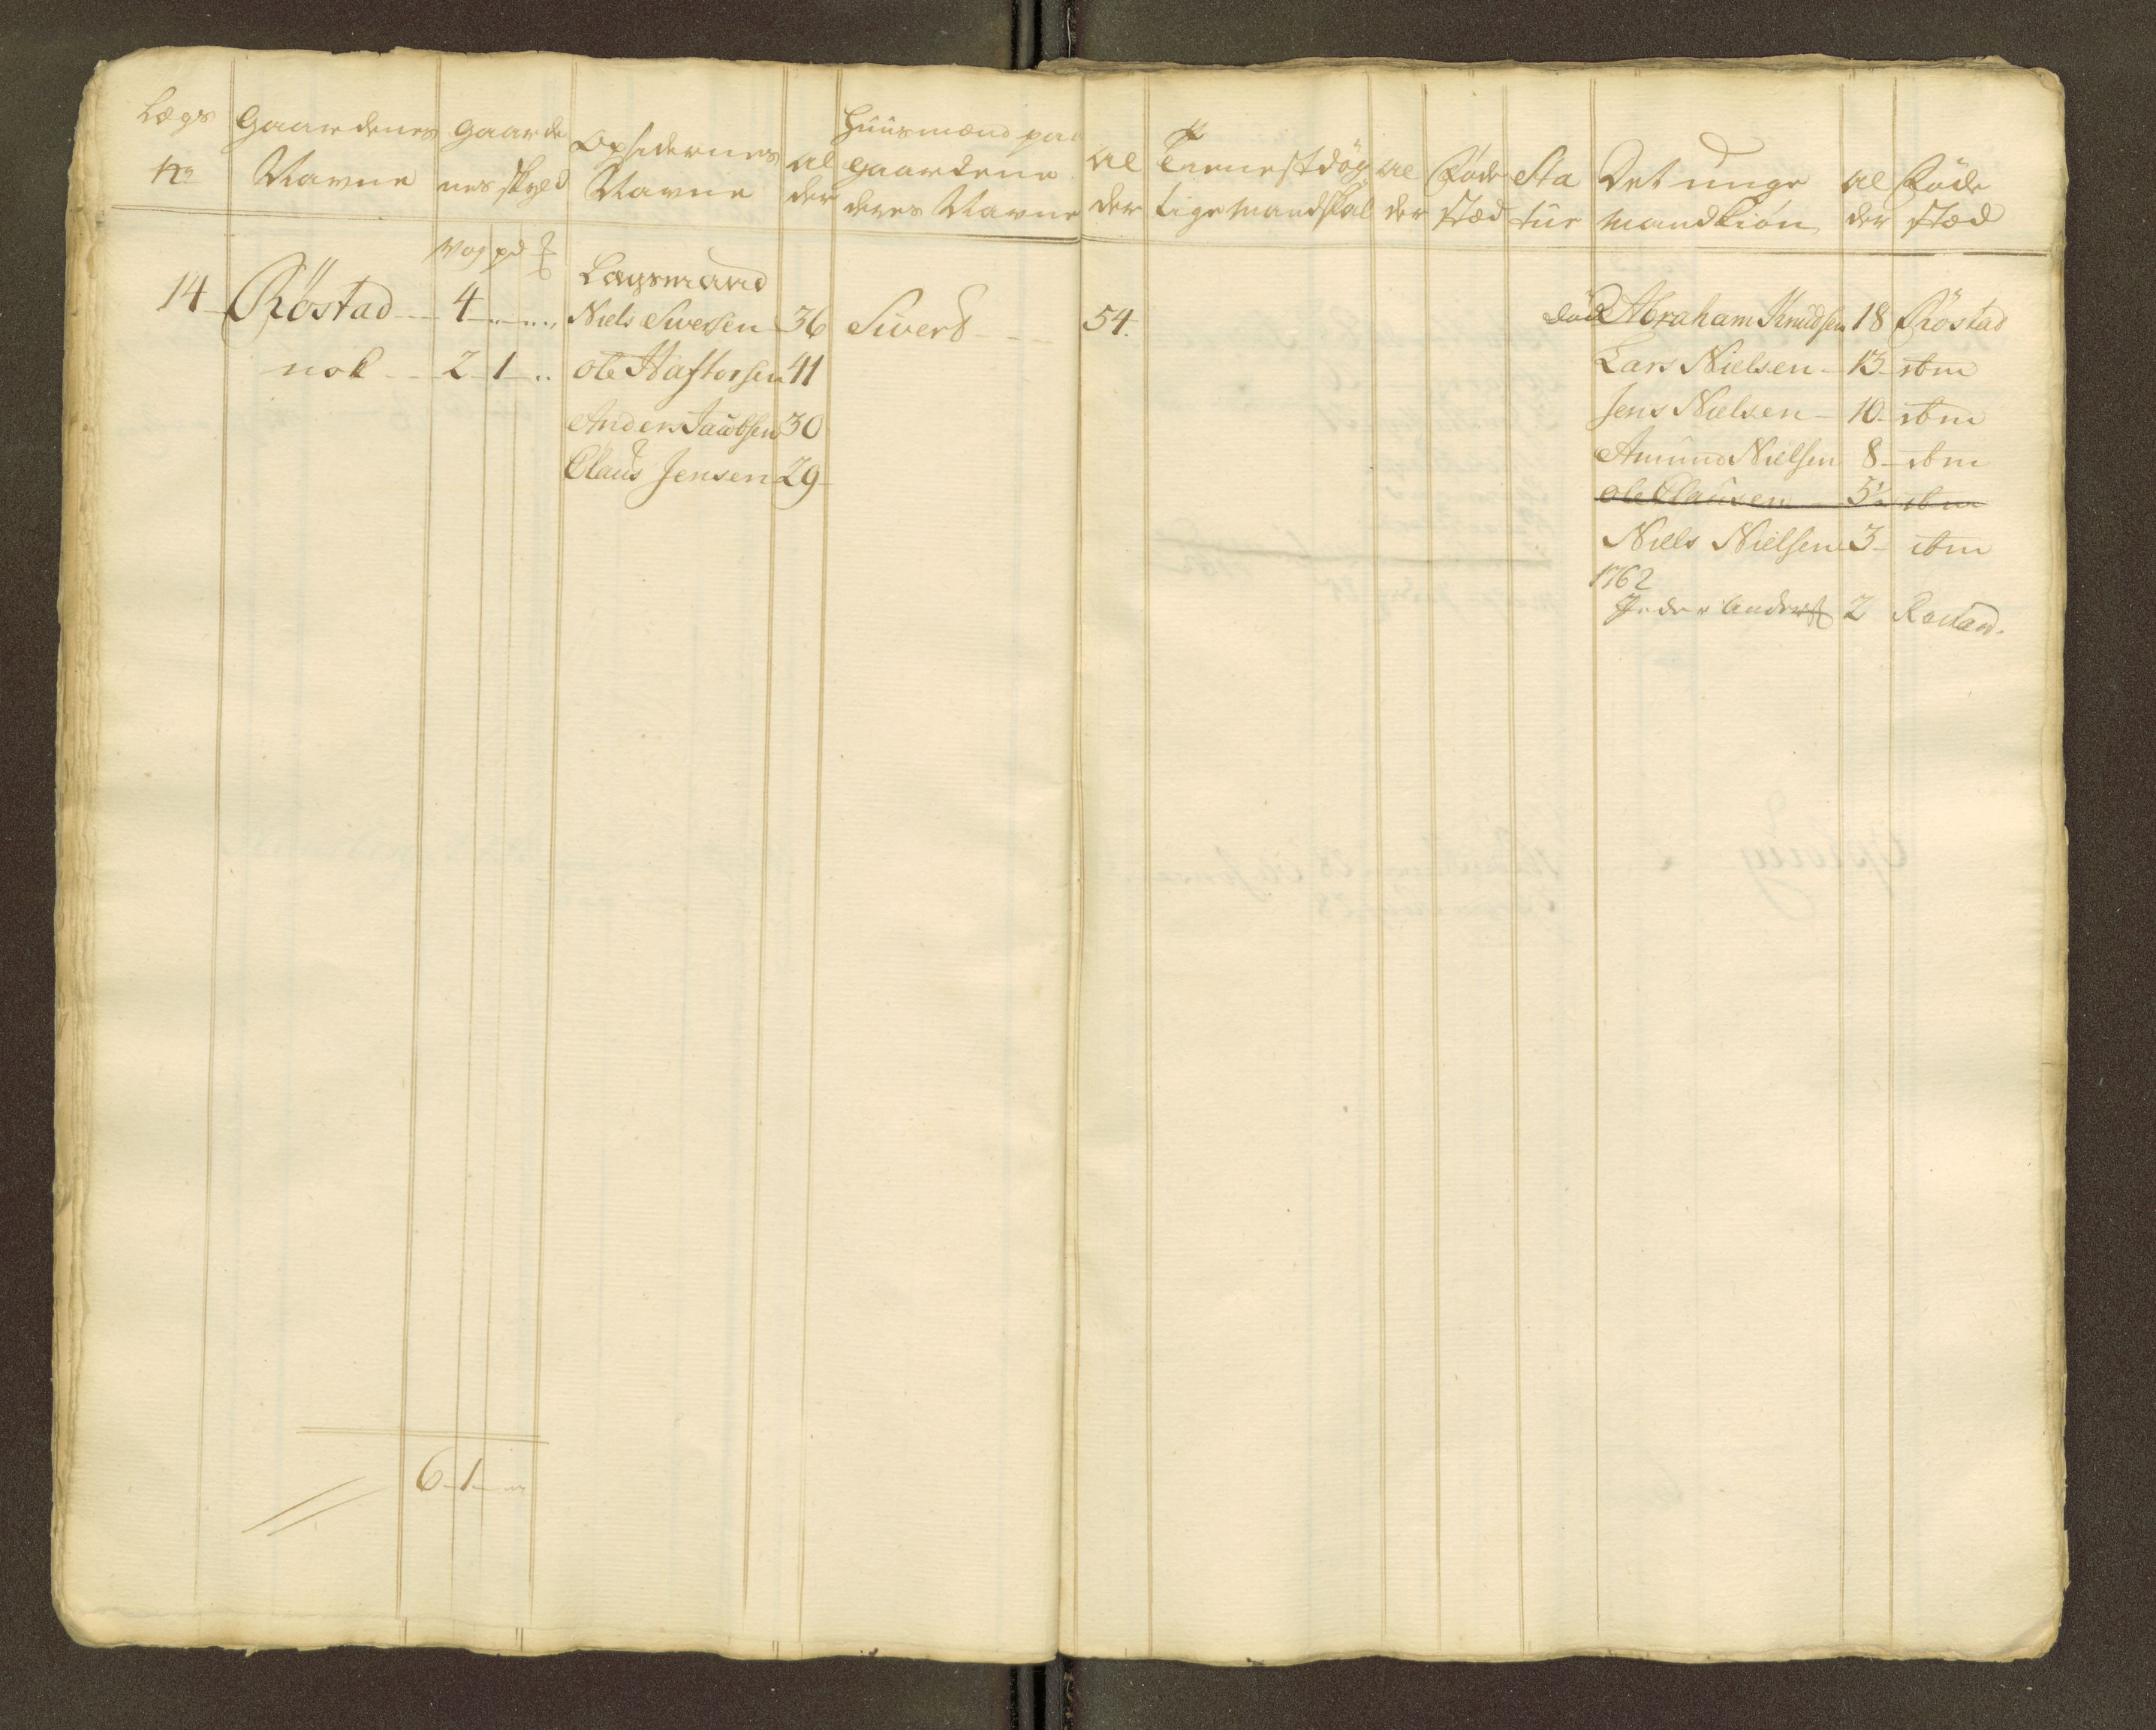 Lægs No | Gaardenes Navne | Gaardenes skyld | Opsidernes Navne | Alder | Huusmænd paa Gaardene deres Navne | Alder | Tienestdögtige Mandskal | Alder | Föde stæd | Statur | Det unge Mandkiön | Alder | Föde stæd
Vog pd
14 Röstad 4 Laugsmand
Niels Siversen 36 Sivert 54. död Abraham Knudsen 18 Röstad
nok 2 1 Ole Haftorsen 41 Lars Nielsen 13 ibm
Anders Jacobsen 30 Jens Nielsen 10 ibm
Claus Jensen 29 Amund Nielsen 8 ibm
Ole Clausen 5 ibm
Niels Nielsen 3 ibm
1762
Peder Anders 2 Rostad.
6 1